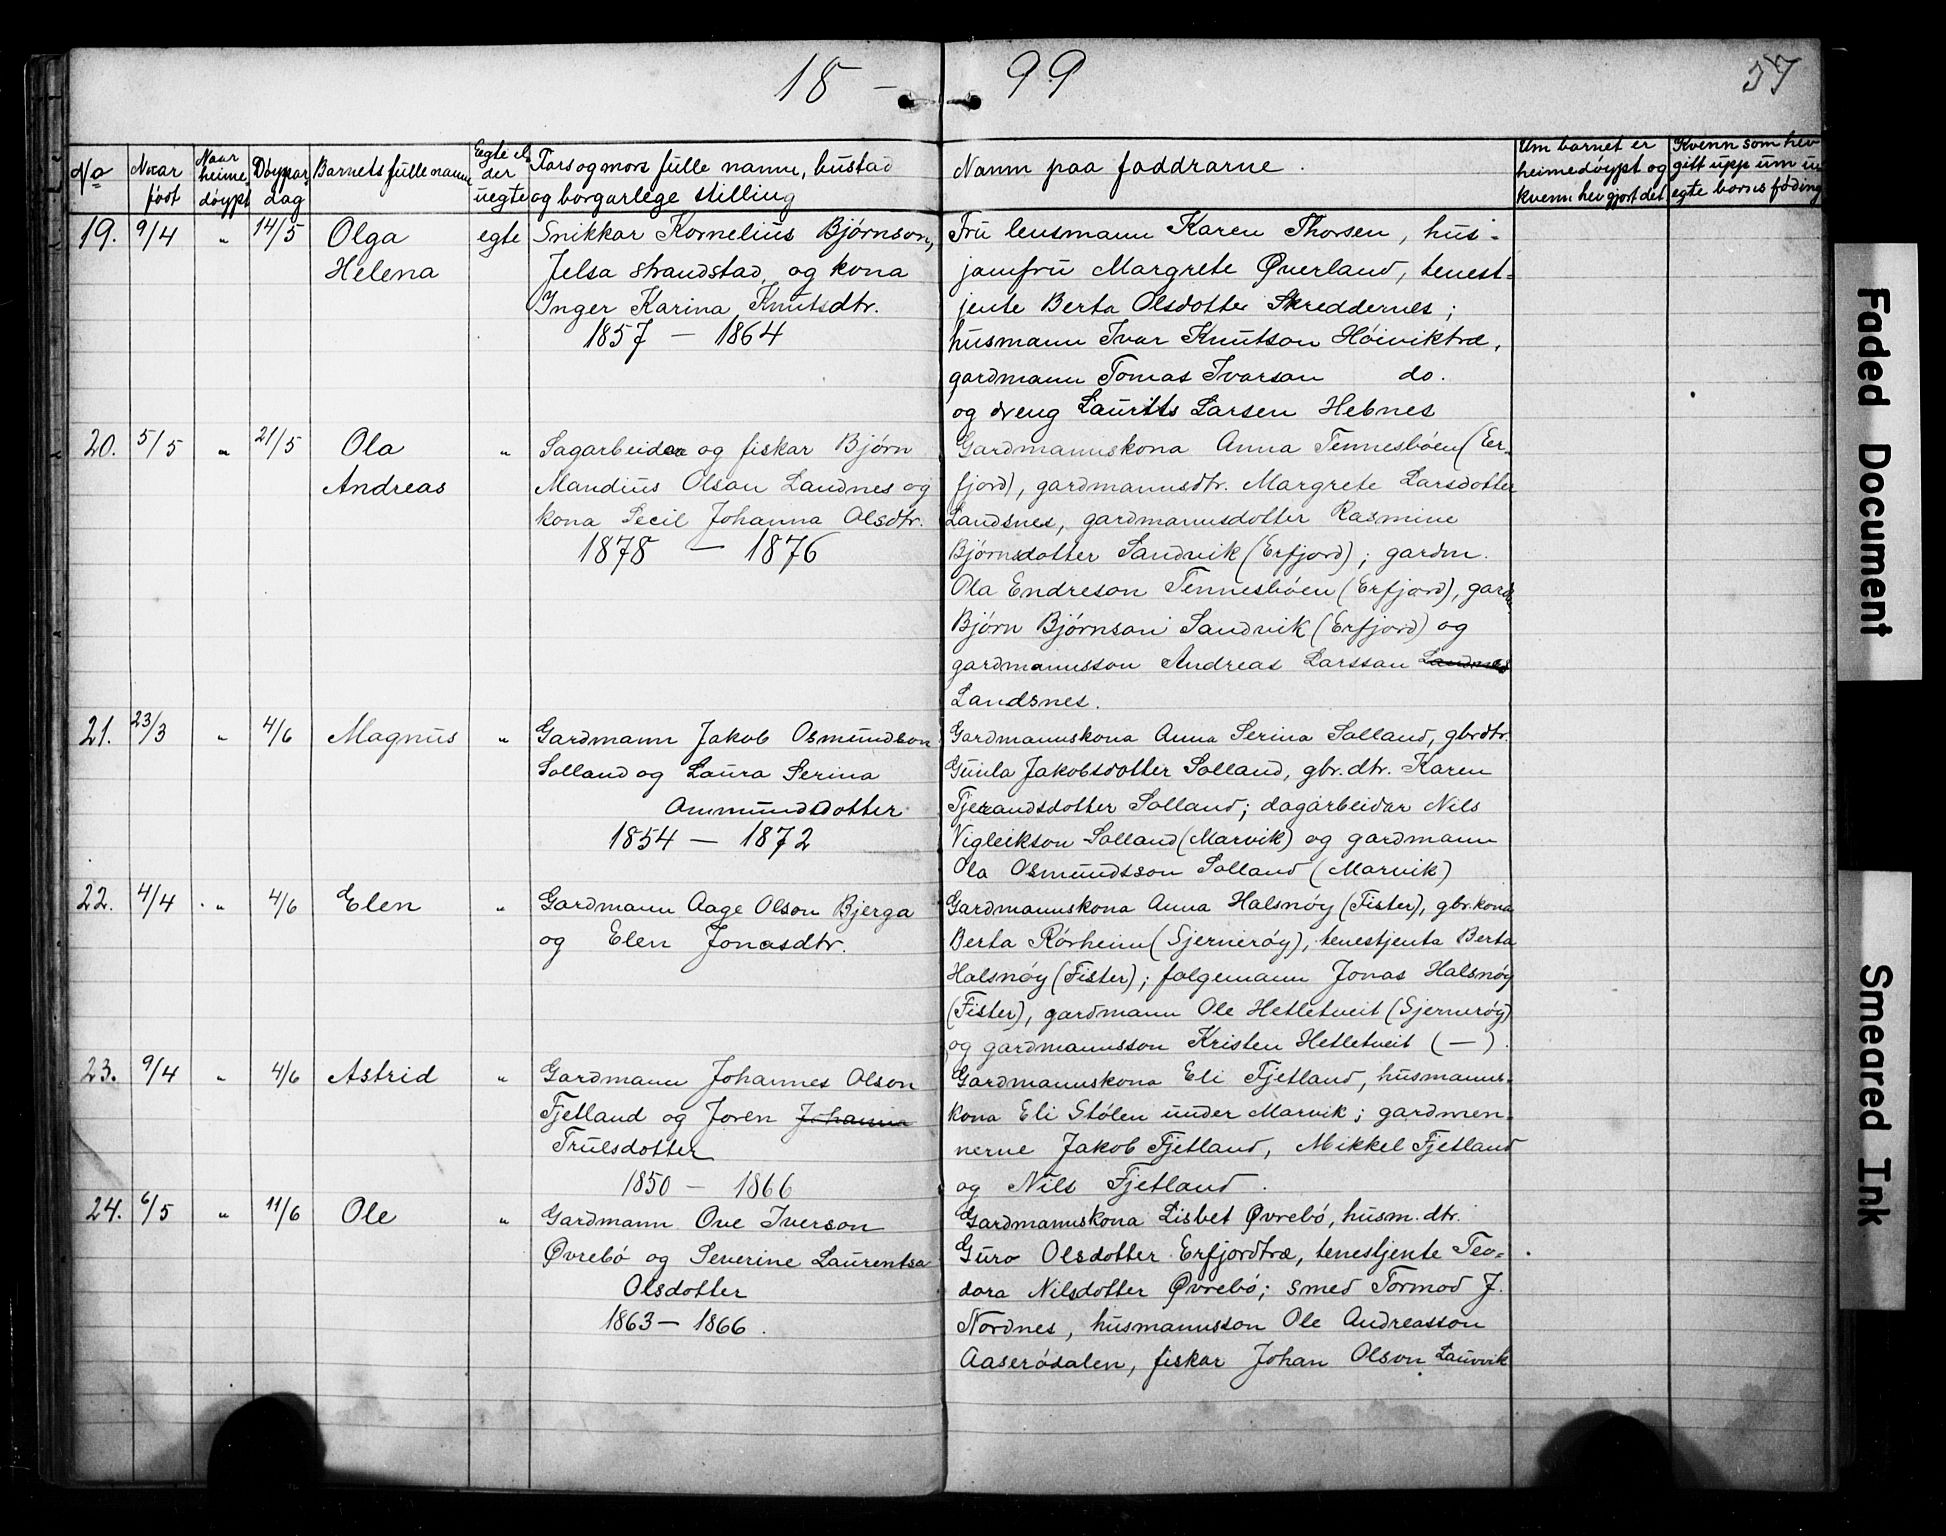 18 — 99
57
No
Naar født
Naar heimedøypt
Døypardag
Barnets fulle namn
Egte elder uegte
Fars og mors fulle namn, bustad og borgarlege stilling
Namn paa faddrarne.
Um barnet er heimedøypt og kvenn hev gjort det
Kvenn som hev gitt upp um uegte borns føding
19. 9/4 „ 14/5 Olga Helena egte
Snikkar Kornelius Bjørnson,
Jelsa strandstad, og kona
Inger Karina Knutsdtr.
1857 — 1864
Fru lensmann Karen Thorsen, hus-
jomfru Margrete Øverland, tenest-
jente Berta Olsdotter Skreddernes;
husmann Ivar Knutson Høiviktræ,
gardmann Tomas Ivarson do.
og dreng Laurits Larsen Hebnes
20. 5/5 „ 21/5 Ola Andreas „
Sagarbeidar og fiskar Bjørn
Mandius Olson Landnes og
kona Secil Johanna Olsdtr.
1878 — 1876
Gardmannskona Anna Tennesbøen (Er-
fjord), gardmannsdtr. Margrete Larsdotter
Landsnes, gardmannsdotter Rasmine
Bjørnsdotter Sandvik (Erfjord); gardm.
Ola Endreson Tennesbøen (Erfjord), gardm
Bjørn Bjørnson Sandvik (Erfjord) og
gardmannsson Andreas Larsson Landnes
Landsnes.
21. 23/3 „ 4/6 Magnus „
Gardmann Jakob Osmundson
Solland og Laura Serina
Ommundsdotter
1854 — 1872
Gardmannskona Anna Serina Solland, gbrdtr.
Gunla Jakobsdotter Solland, gbr. dtr. Karen
Tjerandsdotter Solland; dagarbeidar Nils
Vigleikson Solland (Marvik) og gardmann
Ola Osmundsson Solland (Marvik)
22. 4/4 „ 4/6 Elen „
Gardmann Aage Olson Bjerga
og Elen Jonasdtr.
Gardmannskona Anna Halsnøy (Fister), gbr. kona
Berta Rørheim (Sjernerøy), tenestjenta Berta
Halsnøy (Fister); folgemann Jonas Halsnøy
(Fister), gardmann Ole Hetletveit (Sjernerøy)
og gardmannsson Kristen Hetletveit (—).
23. 9/4 „ 4/6 Astrid „
Gardmann Johannes Olson
Fjetland og Joren Johanna
Trulsdotter
1850 — 1866
Gardmannskona Eli Fjetland, husmanns-
kona Eli Stølen under Marvik; gardmen-
nerne Jakob Fjetland, Mikkel Fjetland
og Nils Fjetland.
24. 6/5 „ 11/6 Ole „
Gardmann Ove Iverson
Øvrebø og Severine Laurentsa
Olsdotter
1863 — 1866.
Gardmannskona Lisbet Øvrebø, husm. dtr.
Guro Olsdotter Erfjordtræ, tenestjente Teo-
dora Nilsdotter Øvrebø; smed Tormod J.
Nordnes, husmannsson Ole Andreasson
Aaserødalen, fiskar Johan Olson Lauvvik
Faded Document
Smeared Ink